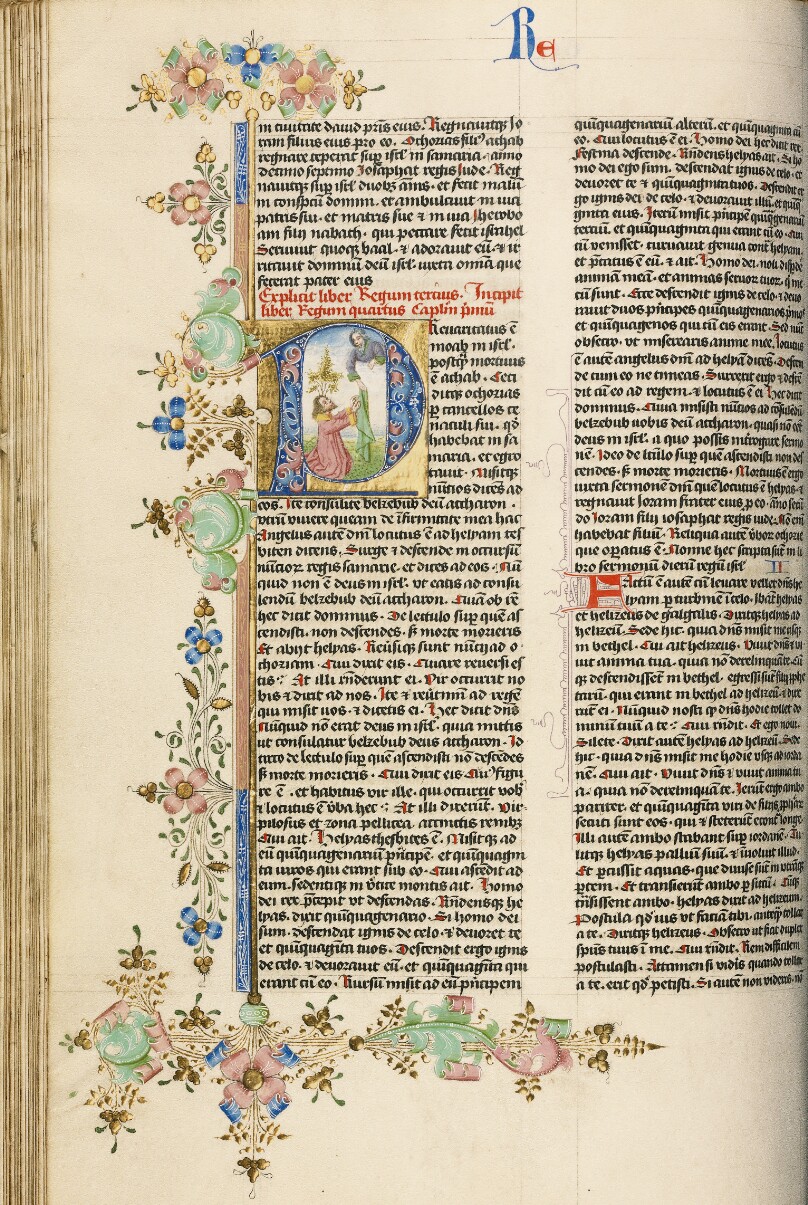 Re
in civitate david pris eius. Regnavitqʒ Jo
ram filius eius pro eo. Ochozias fili9 achab
regnare ceperat sup isrl in samaria. anno
decimo septimo Josaphat regis Iude. Reg
navitqʒ sup isrl duobʒ annis. et fecit malū
in conspctu domini. et ambulavit in via
patris sui. et matris sue et in via Iherobo
am filij nabath. qui peccare fecit israhel
Servivit quoqʒ baal. ⁊ adoravit eū. ⁊ ir
ritavit dominū deū isrl. iuxta omīa que
fecerat pater eius
Explicit liber Regum tercius. Incipit
liber Regum quartus Caplm pmū
Revaricatus ē
moab in isrl.
postqʒ mortuus
ē achab. Ceci
ditqʒ ochozias
p cancellos ce
naculi sui. qd
habebat in sa
maria. et egro
tavit. Misitqʒ
nūtios dicēs ad
eos. Ite consulite belzebub deū accharon.
vtrū vivere queam de īfirmitate mea hac
Angelus autē dni locutus ē ad helyam tes
biten dicens. Surge ⁊ descende in occursū
nūcior regis samarie. et dices ad eos. Nū
quid non ē deus in isrl. vt eatis ad consu
lendū belzebub deū accharon. Quā ob rē
hec dicit dominus. De lectulo sup quē as
cendisti. non descendes. sʒ morte morieris
Et abijt helyas. Reūsiqʒ sunt nūcij ad o
choziam. Qui dixit eis. Quare reversi es
tis? At illi rnderunt ei. Vir occurrit no
bis ⁊ dixit ad nos. Ite ⁊ reūtimī ad regē
qui misit vos. ⁊ dicetis ei. Hec dicit dns
Nūquid nō erat deus in isrl. quia mittis
ut consulatur belzebub deus accharon. Id
circo de lectulo sup quē ascendisti nō descēdes
sʒ morte morieris. Qui dixit eis Cui9 figu
re ē. et habitus vir ille. qui occurrit vob
⁊ locutus ē vba hec? At illi dixerūt. Vir
pilosus et zona pellicea. accinctis renibʒ
Qui ait. Helyas thesbites ē. Misitqʒ ad
eū quīquagenariū pncipē. et quīquagin
ta viros qui erant sub eo. Qui ascēdit ad
eum. sedentiqʒ in vtice montis ait. Homo
dei rex pcepit vt descendas. Rndensqʒ he
lyas. dixit quīquagenario. Si homo dei
sum. descendat ignis de celo. ⁊ devoret te
et quīquagīta tuos. Descendit ergo ignis
de celo. ⁊ devoravit eū. et quīquagīta qui
erant cū eo. Rursū misit ad eū pncipem
quīquagenariū alterū. et quīquagīnta cū
eo. Qui locutus ē ei. Homo dei hec dicit rex
Festina descende. Rndens helyas ait. Si ho
mo dei ego sum. descendat ignis de celo. et
devoret te ⁊ quīquagīnta tuos. Descendit er
go ignis dei de celo. ⁊ devoravit illū. et quīqua
gīnta eius. Iterū misit pncipē quīquagenariū
tercium. et quīquagīnta qui erant cū eo. Qui
cū venisset. curvavit genua contra helyam.
et pcatus ē eū. ⁊ ait. Homo dei. noli despice
animā meā. et animas servor tuor. qi me
cū sunt. Ecce descendit ignis de celo. ⁊ devo
ravit duos pncipes quīquagenarios pmos
et quīquagenos qui cū eis erant. Sed nūc
obsecro. vt miserearis anime mee. locutus
ē autē angelus dni ad helyā dicēs. Descen
de cum eo ne timeas. Surrexit ergo ⁊ descē
dit cū eo ad regem. ⁊ locutus ē ei. Hec dicit
dominus. Quia misisti nūcios ad cōsulēdū
belzebub deū accharon. quasi nō eēt
deus in isrl. a quo possis intrōgare sermo
nē. Ideo de lectulo sup quē ascendisti non des
cendes. sʒ morte morieris. Mortuus ē ergo
iuxta sermonē dni quē locutus ē helyas. ⁊
regnavit Ioram frater eius p eo. āno secū
do Ioram filij iosaphat regis iude. Nō enī
habebat filiū. Reliqua autē vbor ochozie
que opatus ē. Nonne hec scripta sūt in li
bro sermonū dierū regū isrl II
Factū ē autē cū levare vellet dns he
lyam p turbinē ī celo. ibāt helyas
et helizeus de galgalis. Dixitqʒ helyas ad
helizeū. Sede hic. quia dns misit me usqʒ
in bethel. Cui ait helizeus. Vivit dns ⁊ vi
vit anima tua. quia nō derelinquā te. Cū
qʒ descendisset in bethel. egressi sūt filij pphe
tarū. qui erant in bethel ad helizeū. ⁊ dixe
rūt ei. Nūquid nosti qʒ dns hodie tollet do
minū tuū a te? Qui rndit. Et ego novi.
Silete. Dixit autē helyas ad helizeū. Sede
hic. quia dns misit me hodie vsqʒ ad iorda
nē. Qui ait. Vivit dns ⁊ vivit anima tu
a. quia nō derelinquā te. Ierūt ergo ambo
pariter. et quīquagīta viri de filijs pphar
secuti sunt eos. qui ⁊ steterūt econtra longe.
Illi autē ambo stabant sup iordanē. Tu
litqʒ helyas palliū suū. ⁊ īvoluit illud.
Et pcussit aquas. que divise sūt in utraqʒ
ptem. Et transierūt ambo p siccū. Cūqʒ
trāsissent ambo. helyas dixit ad helizeum.
Postula qd vis vt faciā tibi. anteqʒ tollar
a te. Dixitqʒ helizeus. Obsecro ut fiat duplex
spūs tuus ī me. Qui rndit. Rem difficilem
postulasti. Attamen si vidis quando tollar
a te. erit qd petisti. Si autē non videris. nō